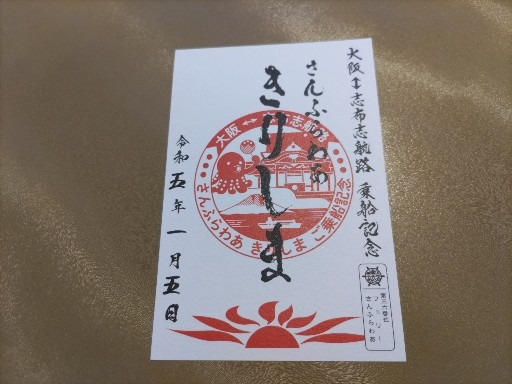 大阪↕志布志航路 乗船記念
さんふらわあ
きりしま
大阪↔志布志航路
さんふらわあ きりしま ご乗船記念
令和五年一月五日
フェリー
さんふらわあ